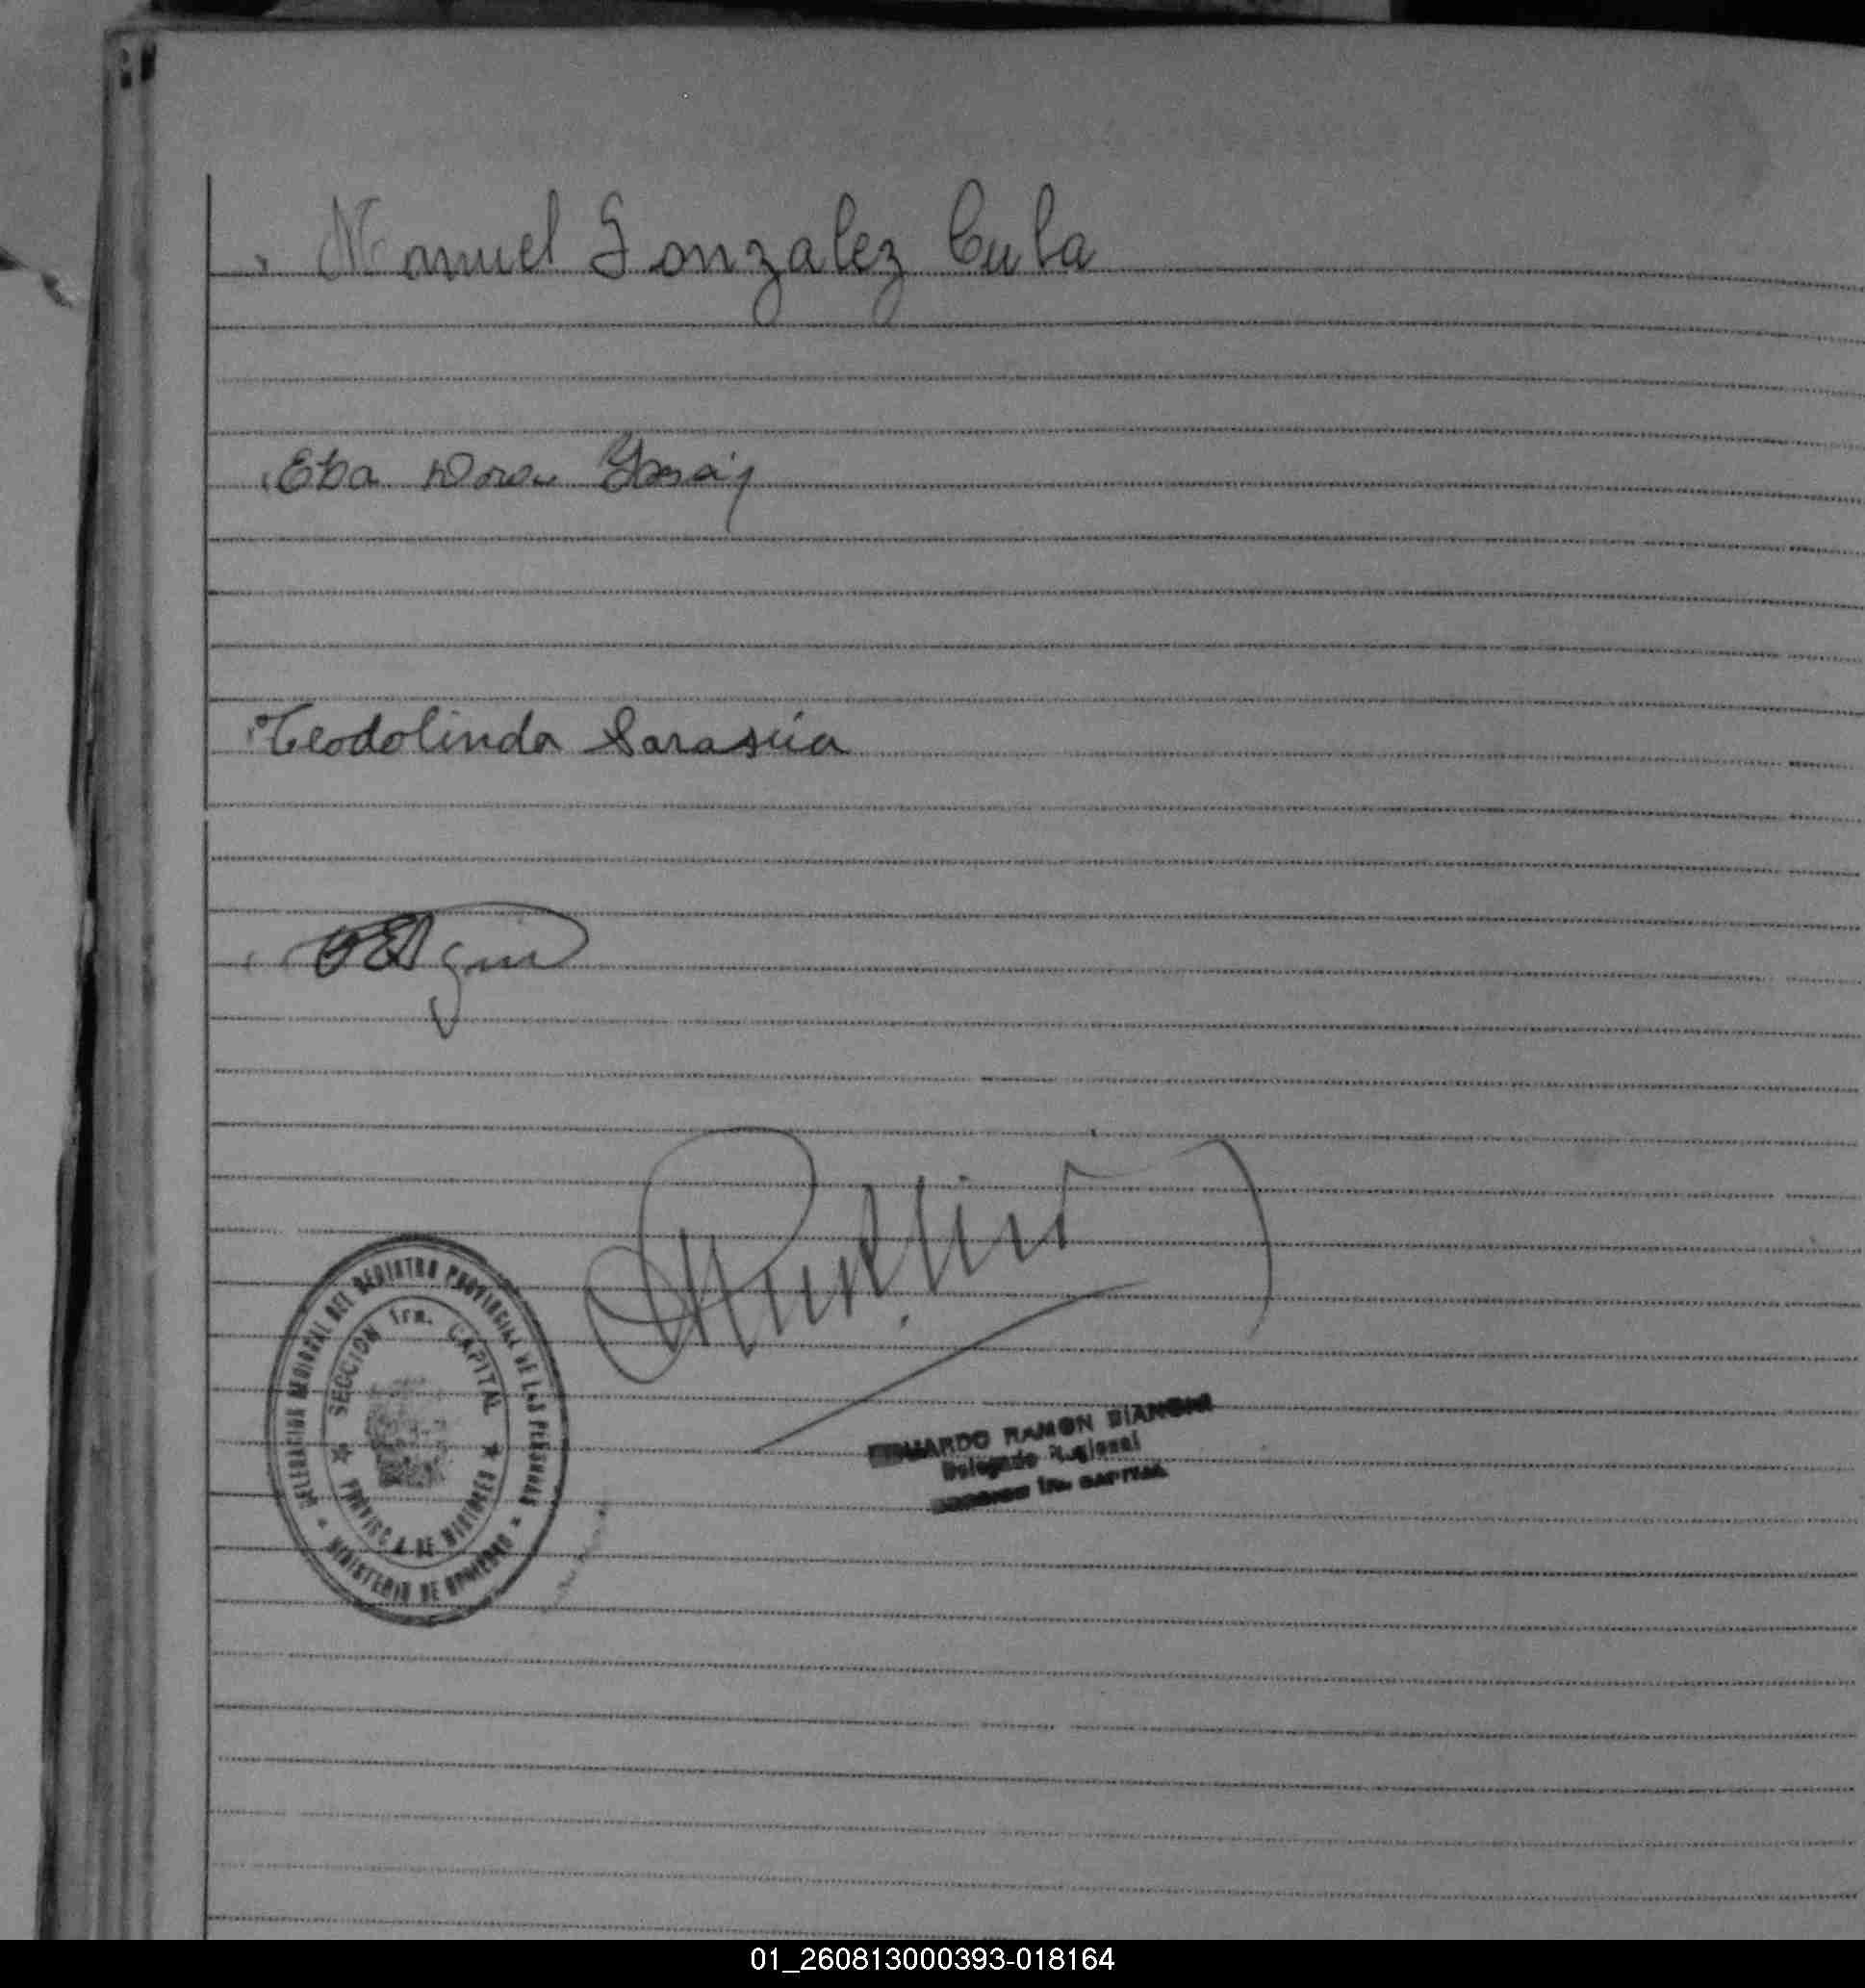 Manuel Gonzalez Cula
Eba Dora
Teodolinda Sarasúa
DELEGACION REGIONAL DEL REGISTRO PROVINCIAL DE LAS PERSONAS
SECCION 1ra. CAPITAL
PROVINCIA DE MISIONES
MINISTERIO DE GOBIERNO
EDUARDO RAMON BIANCHI
Delegado Regional
SECCION 1ra. CAPITAL
01_260813000393-018164